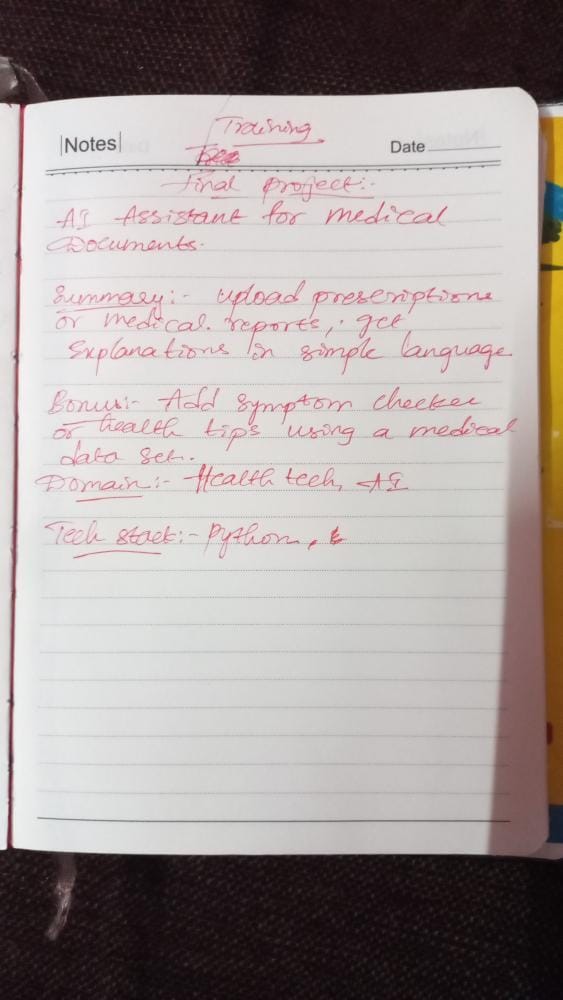 Training
Notes
Date
Final project:-
AI Assistant for medical
Documents.
Summary:- upload prescriptions
or medical reports, get
Explanations in simple language
Bonus:- Add symptom checker
or health tips using a medical
data set.
Domain:- Health tech, AI
Tech stack:- Python,